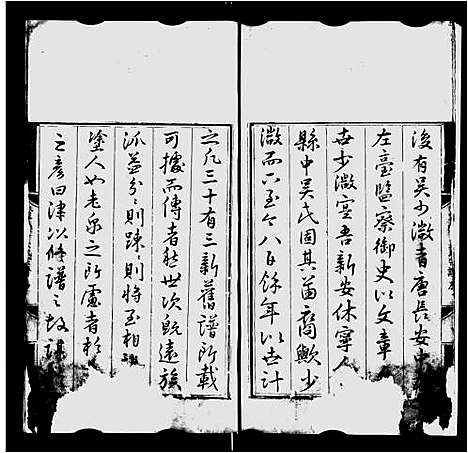 後有吳少微者唐長安中
左臺監察御史以文章
世少微寔吾新安休寧人
縣中吳氏固其苗裔歟少
微而下至今八百餘年以世計
之凡三十有三新舊譜所載
可據而傳者然世次既遠族
派益分分則疎疎則將至相視
塗人如老泉之所慮者於
之彥曰津以修譜之故謀